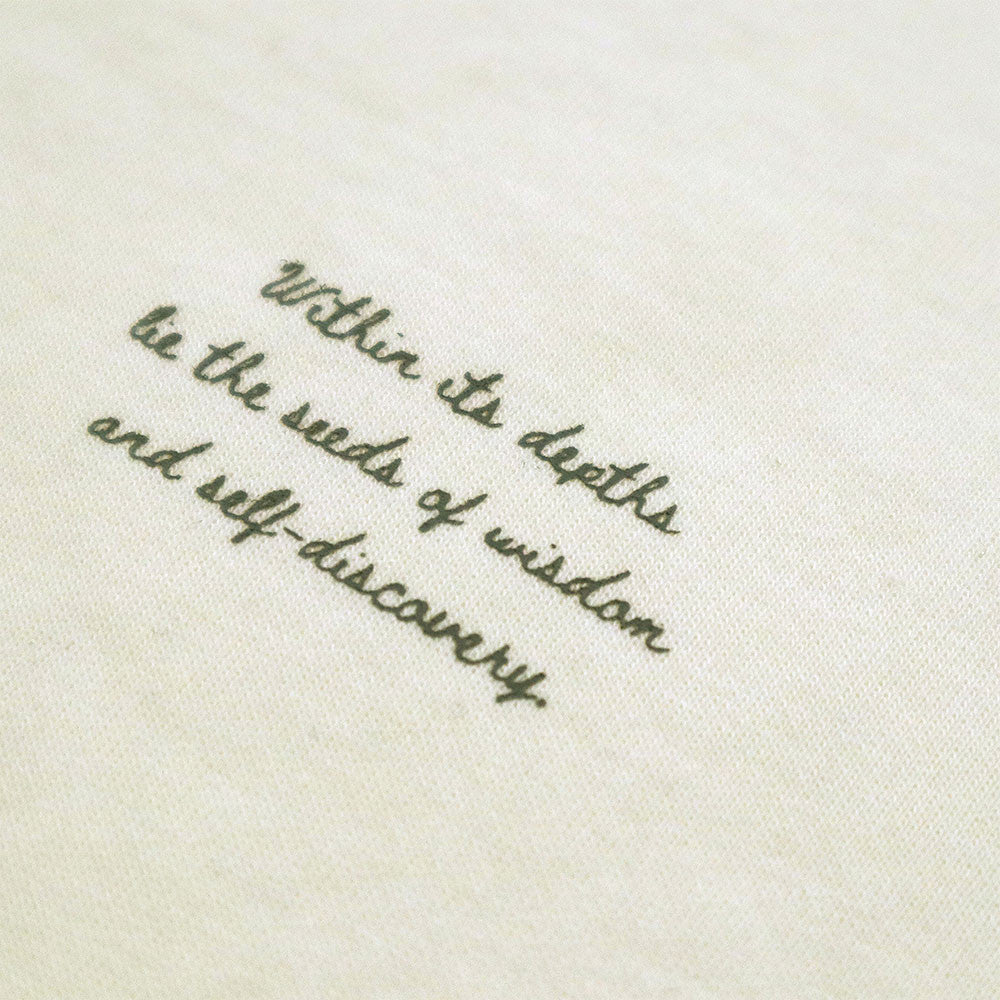 Within its depths
lie the seeds of wisdom
and self-discovery.